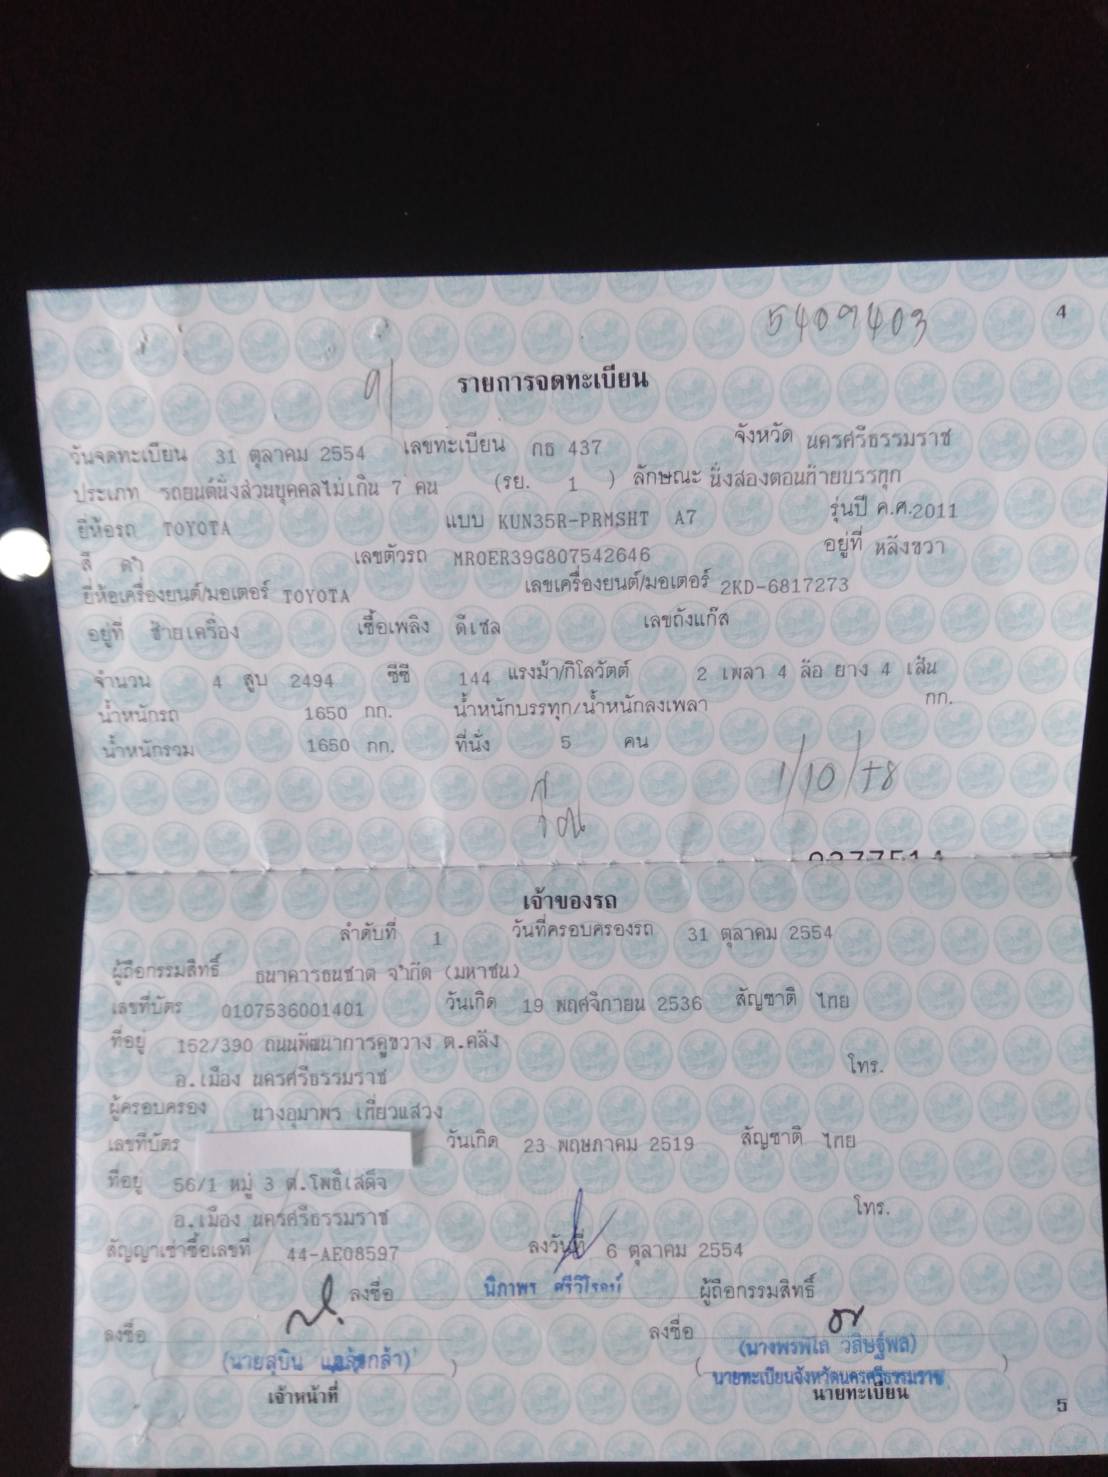 5409403
4
รายการจดทะเบียน
วันจดทะเบียน 31 ตุลาคม 2554 เลขทะเบียน กธ 437 จังหวัด นครศรีธรรมราช
ประเภท รถยนต์นั่งส่วนบุคคลไม่เกิน 7 คน (รย. 1 ) ลักษณะ นั่งสองตอนท้ายบรรทุก
ยี่ห้อรถ TOYOTA แบบ KUN35R-PRMSHT A7 รุ่นปี ค.ศ.2011
สี ดำ เลขตัวรถ MR0ER39G807542646 อยู่ที่ หลังขวา
ยี่ห้อเครื่องยนต์/มอเตอร์ TOYOTA เลขเครื่องยนต์/มอเตอร์ 2KD-6817273
อยู่ที่ ซ้ายเครื่อง เชื้อเพลิง ดีเซล เลขถังแก๊ส
จำนวน 4 สูบ 2494 ซีซี 144 แรงม้า/กิโลวัตต์ 2 เพลา 4 ล้อ ยาง 4 เส้น
น้ำหนักรถ 1650 กก. น้ำหนักบรรทุก/น้ำหนักลงเพลา กก.
น้ำหนักรวม 1650 กก. ที่นั่ง 5 คน
เจ้าของรถ
ลำดับที่ 1 วันที่ครอบครองรถ 31 ตุลาคม 2554
ผู้ถือกรรมสิทธิ์ ธนาคารธนชาต จำกัด (มหาชน)
เลขที่บัตร 0107536001401 วันเกิด 19 พฤศจิกายน 2536 สัญชาติ ไทย
ที่อยู่ 152/390 ถนนพัฒนาการคูขวาง ต.คลัง
อ.เมือง นครศรีธรรมราช โทร.
ผู้ครอบครอง นางอุมาพร เกี่ยวแสวง
เลขที่บัตร วันเกิด 23 พฤษภาคม 2519 สัญชาติ ไทย
ที่อยู่ 56/1 หมู่ 3 ต.โพธิ์เสด็จ
อ.เมือง นครศรีธรรมราช โทร.
สัญญาเช่าซื้อเลขที่ 44-AE08597 ลงวันที่ 6 ตุลาคม 2554
ลงชื่อ นิภาพร ศรีวิโรจน์ ผู้ถือกรรมสิทธิ์
ลงชื่อ ลงชื่อ
(นายสุบิน กล้า) (นางพรพิไล วสิษฐ์พล)
นายทะเบียนจังหวัดนครศรีธรรมราช
เจ้าหน้าที่ นายทะเบียน
5